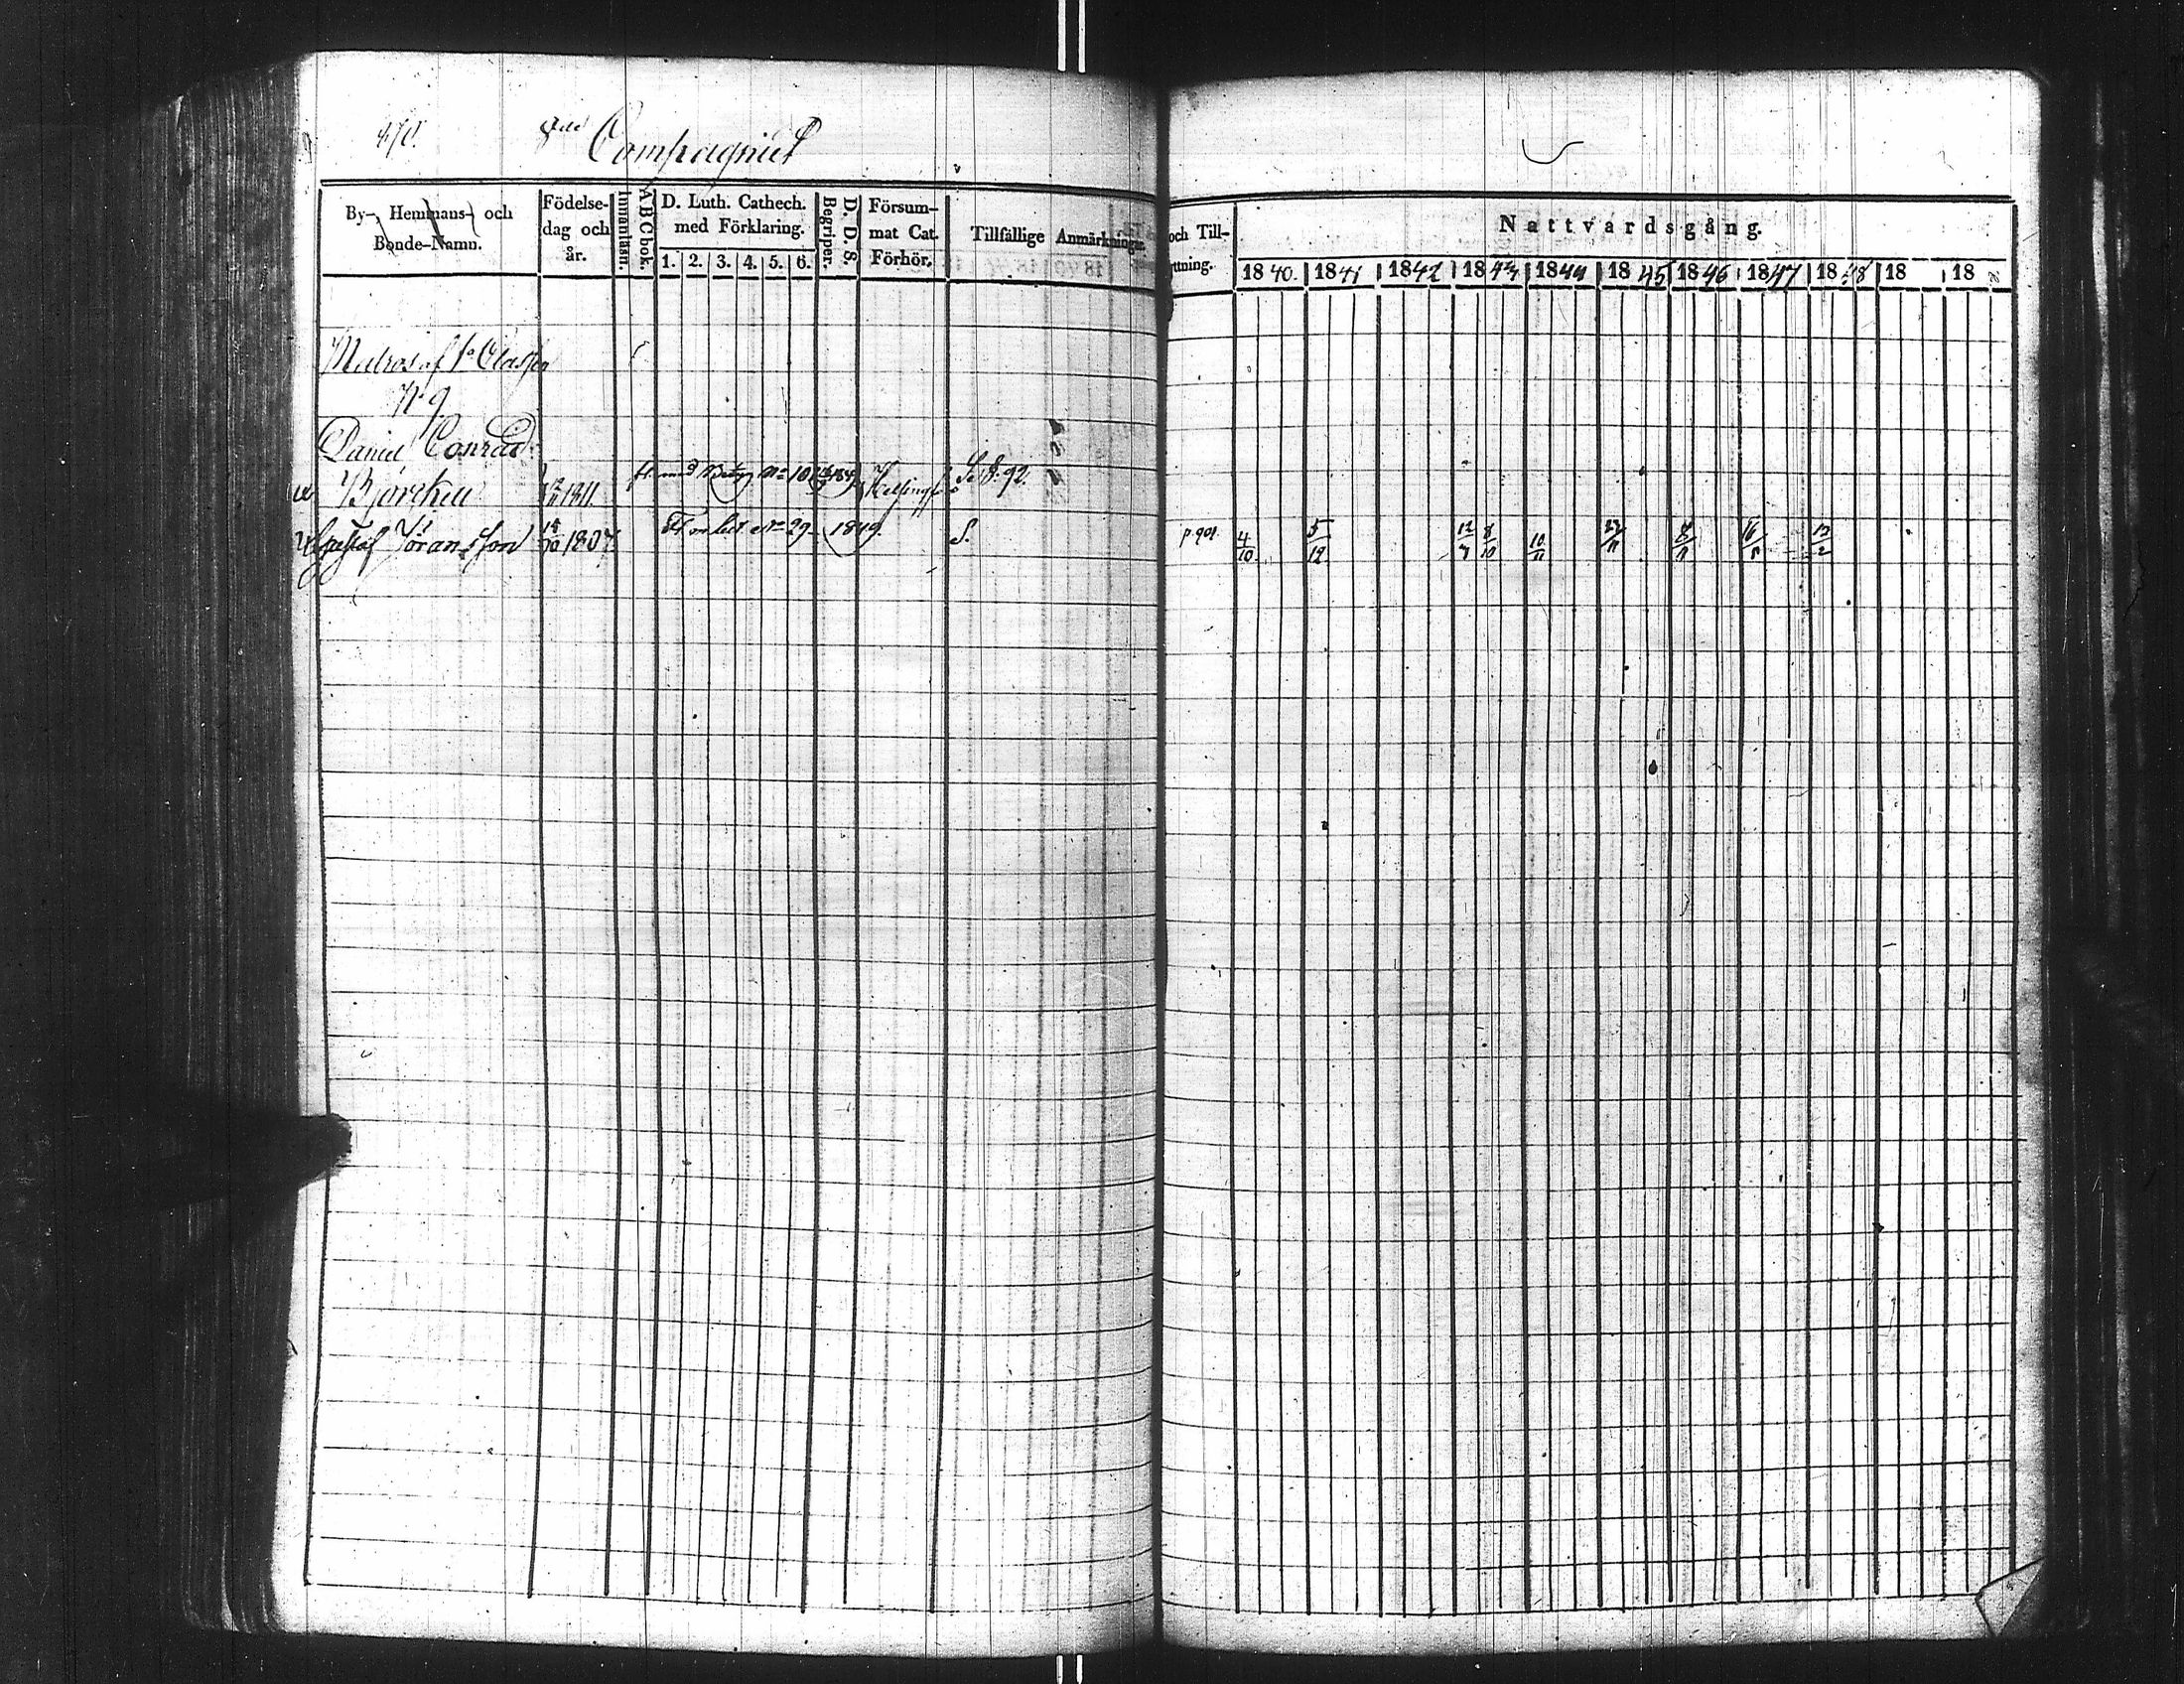 470.
Compagniet
By-, Hemmans- och Bonde-Namn.
Födelse-dag och år.
Innanläsn.
A B C bok.
D. Luth. Cathech. med Förklaring.
1. 2. 3. 4. 5. 6.
Begriper.
D. D. S.
Försum-mat Cat. Förhör.
Tillfällige Anmärkningar
och Till-
ttning.
Nattvardsgång.
1840. 1841 1842 1843 1844 1845 1846 1847 1848 18 18
Matros af 1a Classen
No 9
Daniel Conrad
Björkell 1811. No 10 Helsingf S. 92.
Gustaf Göransson 18/10 1807 No 29 1849. S. p. 901. 4/10 5/12 12/7 8/10 10/11 23/11 8/11 16/5 13/2